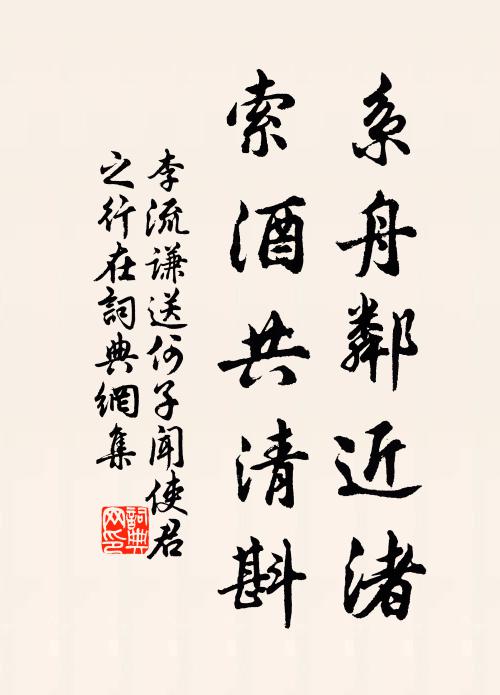 系舟鄰近渚
索酒共清斟
李流謙送何子聞使君
之行在詞典網集
詞典
网印